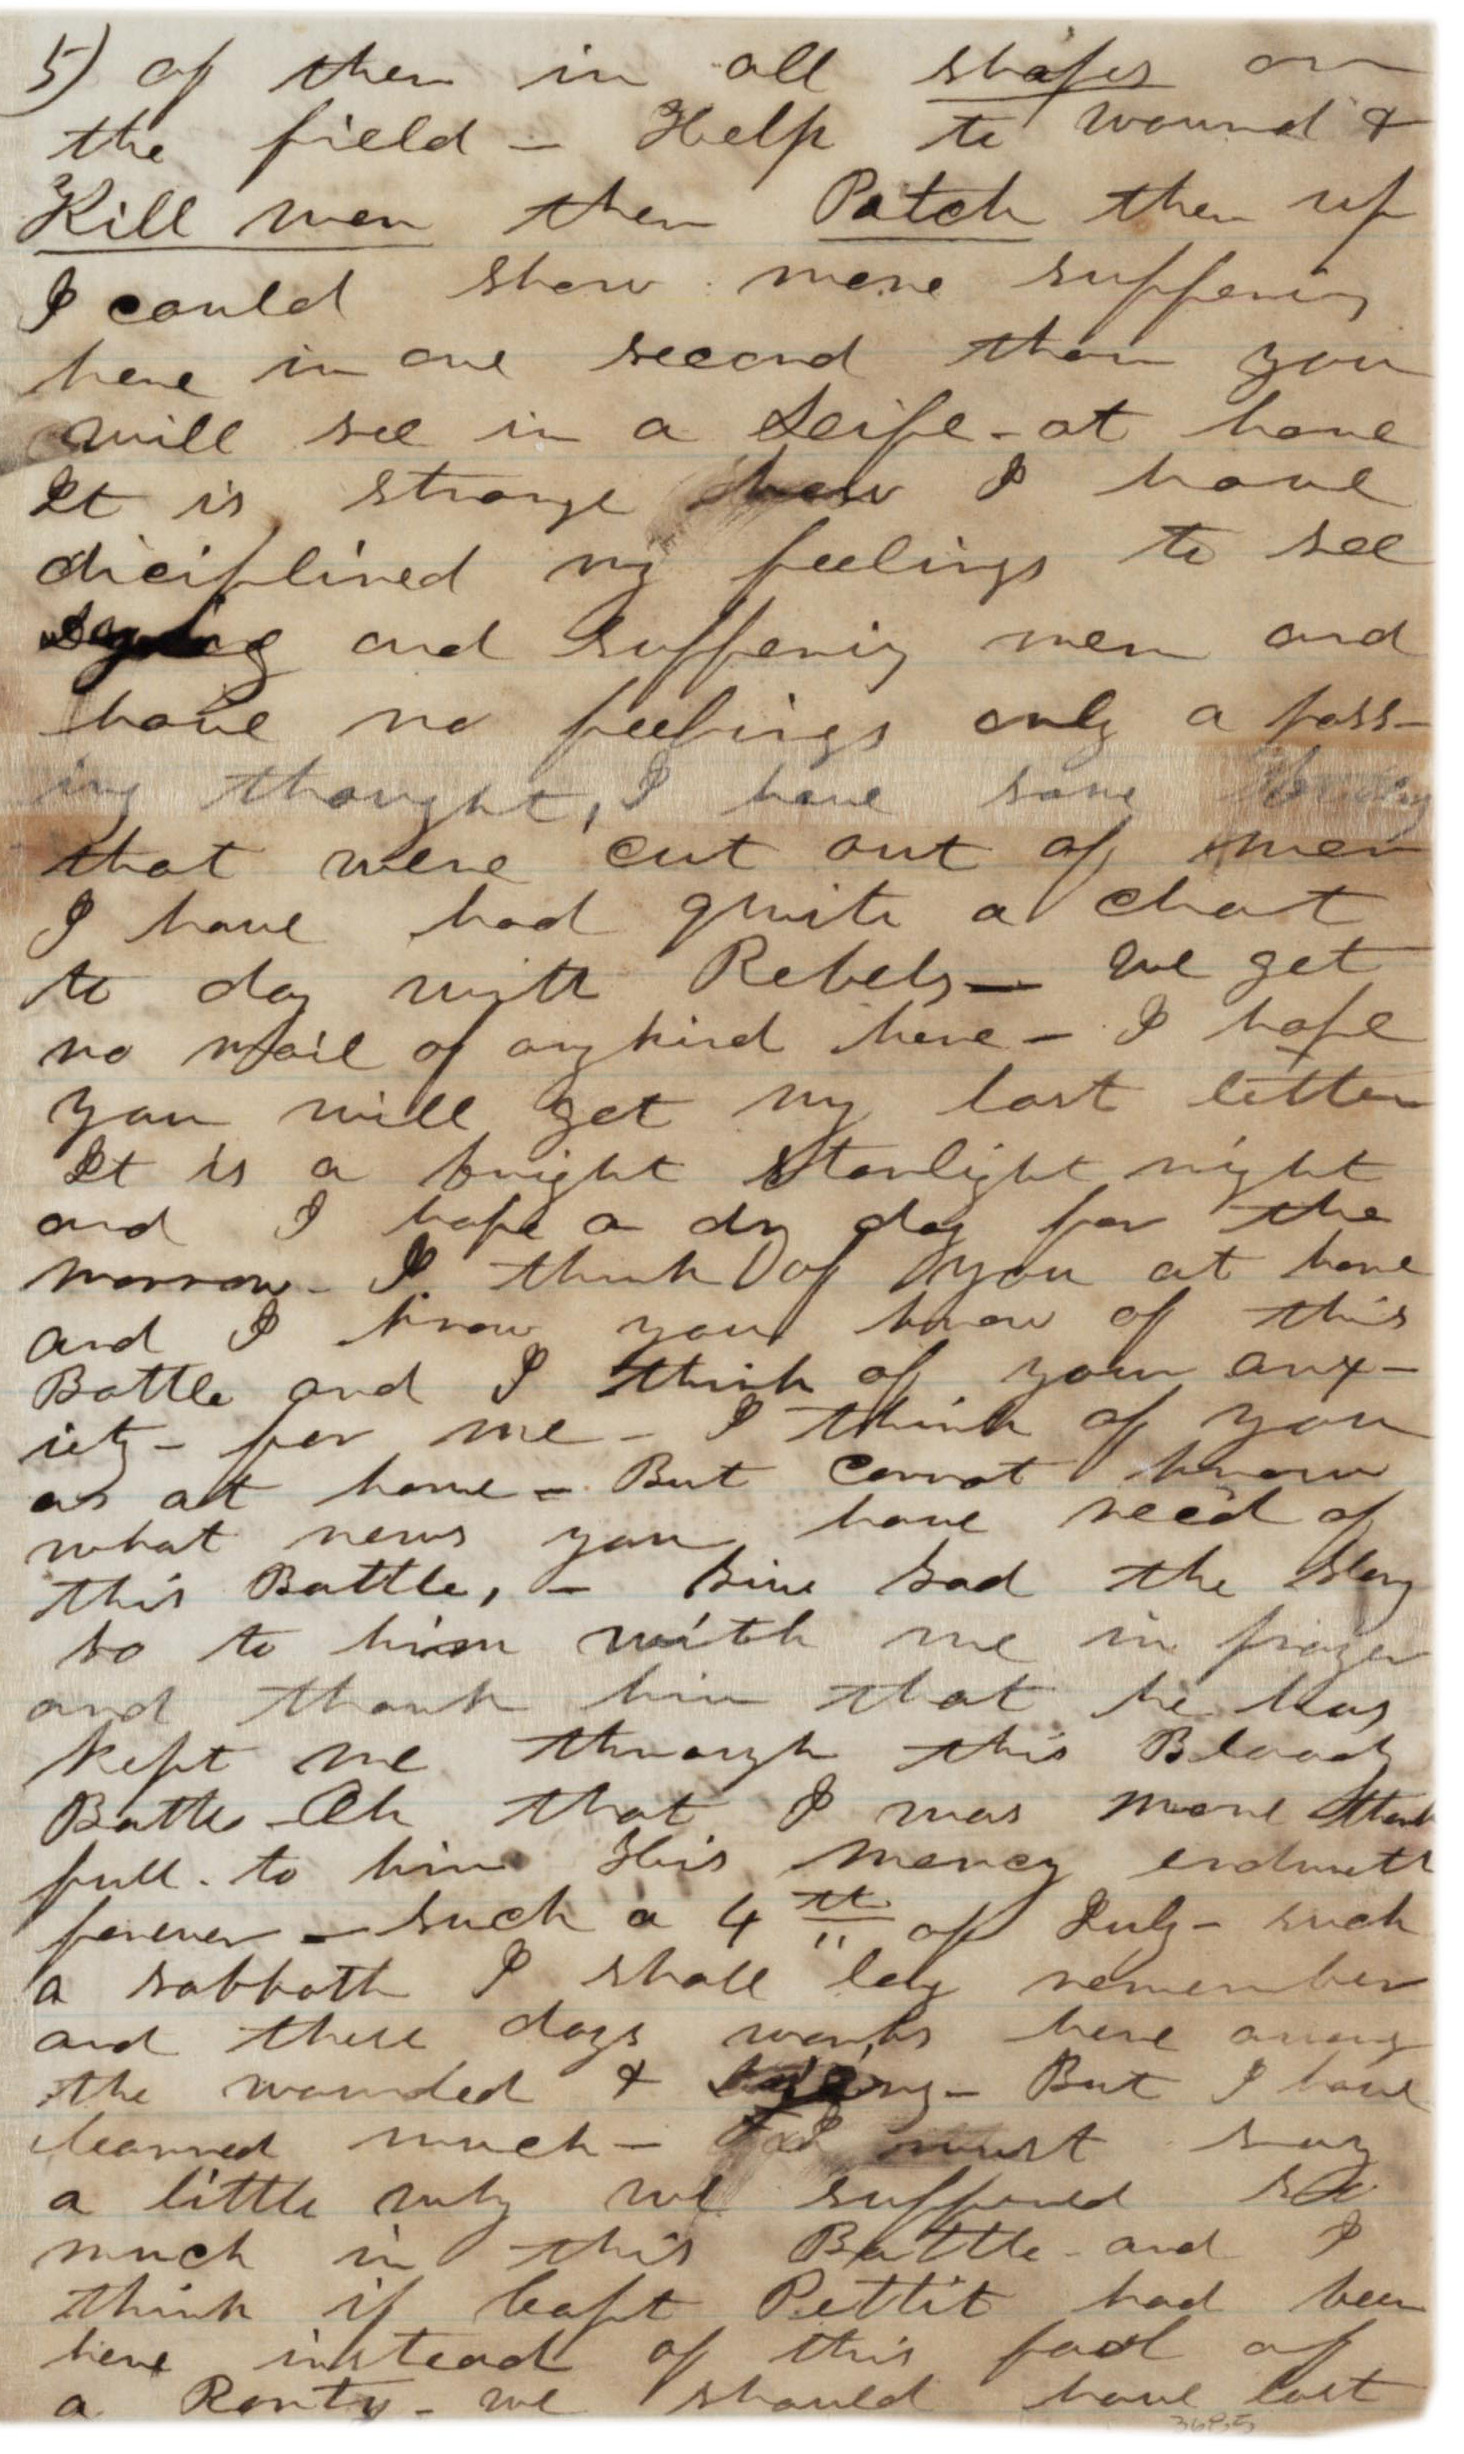 5) of them in all shapes on
the field - Help to wound &
Kill men then Patch them up
I could show more suffering
here in one second than you
will see in a Leife - at home
It is strange how I have
diciplined my feelings to see
and suffering men and
have no feelings only a pass-
ing thought, I have some
that were cut out of men
I have had quite a chat
to day with Rebels - we get
no mail of any kind here - I hope
you will get my last letter
It is a bright starlight night
and I hope a dry day for the
morrow - I think of you at home
and I know you know of this
Battle and I think of your anx-
iety - for me - I think of you
as at home - But cannot know
what news you have reed of
this Battle, - sad the
so to him with me in prayer
and thank him that he has
kept me through this Bloody
Battle - Oh that I was more thank
full - to him His mercy endureth
forever - such a 4th of July - such
a sabbath I shall long remember
and these days works here among
the wounded & dying - But I have
learned much - I must say
a little why we suffered so
much in this Battle - and I
think if Capt Pettit had been
here instead of this fool of
a Rorty - we should have lost
36855